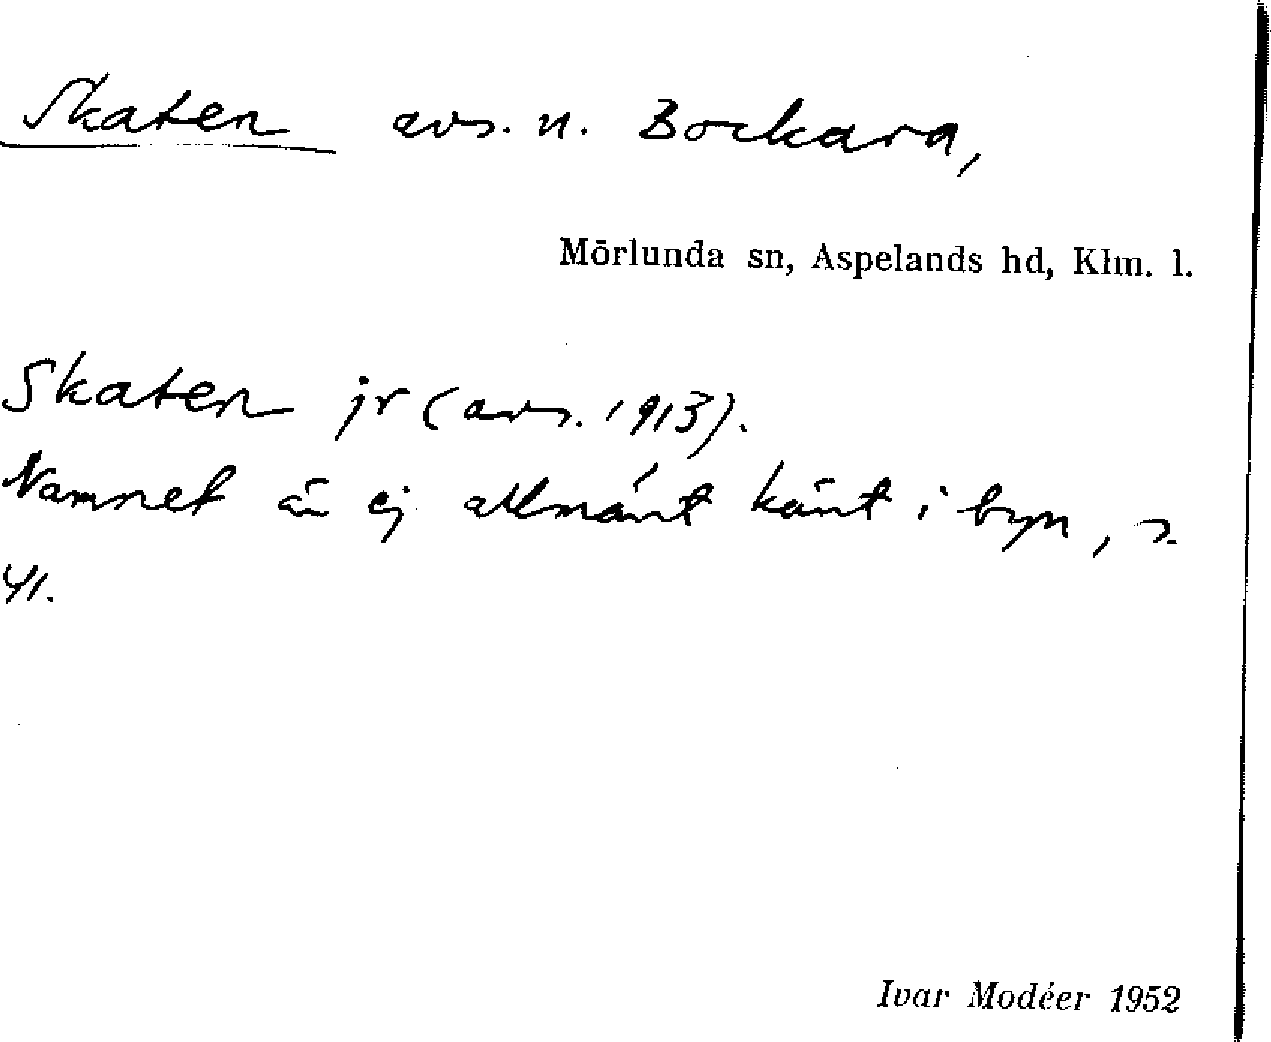 Skaten avs. u. Bockara,
Mörlunda sn, Aspelands hd, Klm. l.
Skaten jr (avs. 1913).
Namnet är ej allmänt känt i byn, s.
41.
Ivar Modéer 1952